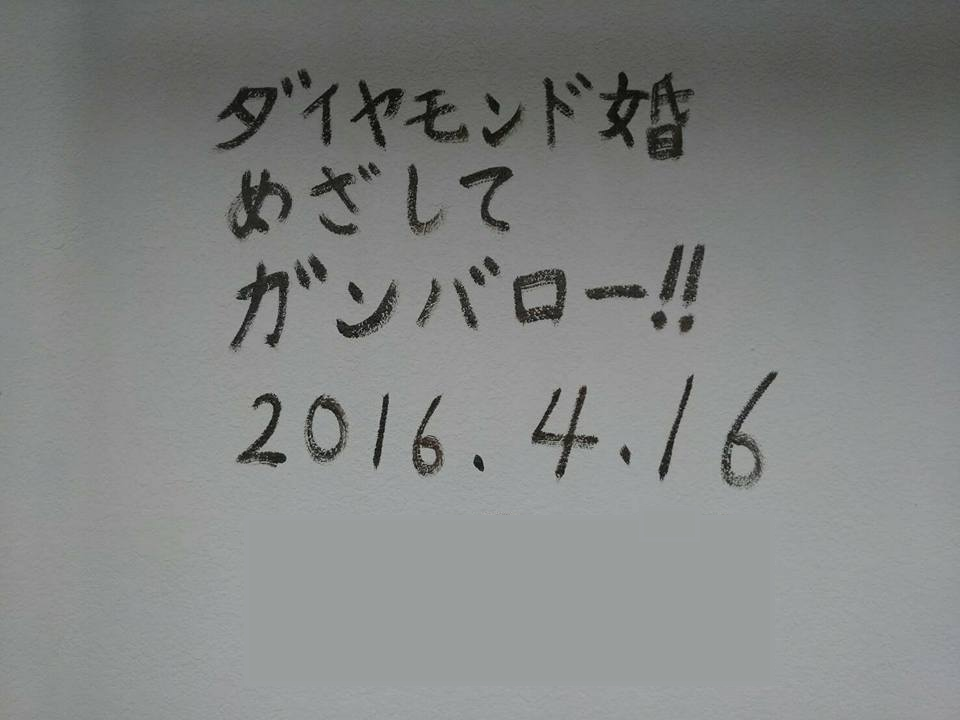 ダイヤモンド婚
めざして
ガンバロー!!
2016.4.16